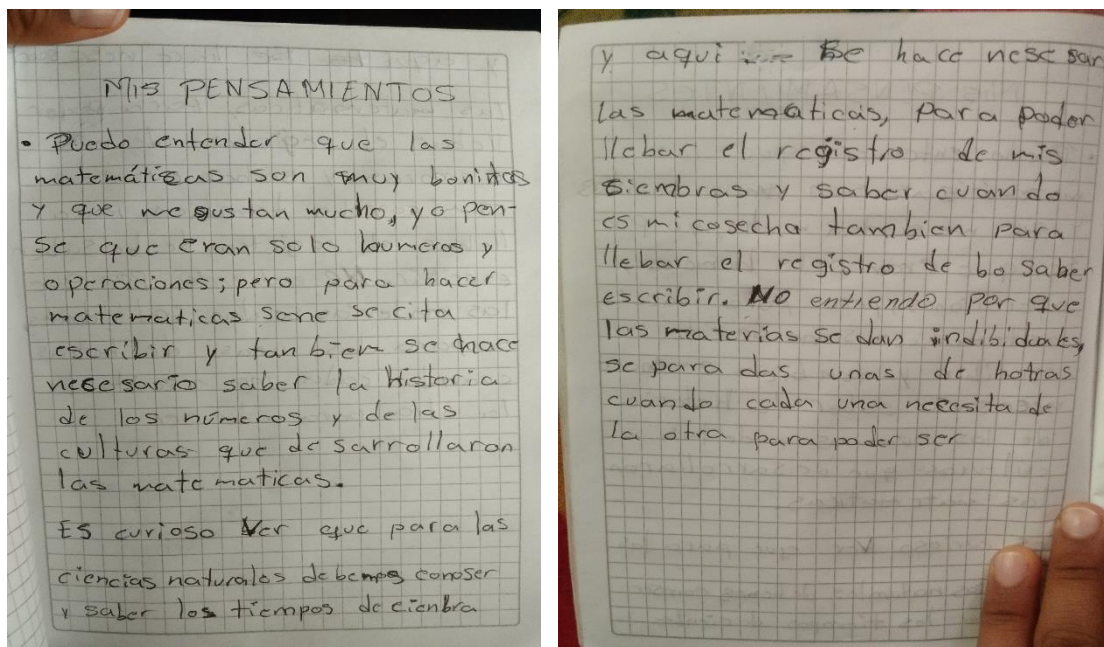 MIS PENSAMIENTOS
• Puedo entender que las
matemáticas son muy bonitas
y que me gustan mucho, yo pen-
se que eran solo numeros y
operaciones; pero para hacer
matematicas sene se cita
escribir y tan bien se hace
nese sario saber la Historia
de los números y de las
culturas que de sarrollaron
las mate maticas.
Es curioso Ver que para las
ciencias naturales debemos conoser
y saber los tiempos de cienbra
y aqui se hace nese sar
las matematicas, para poder
llebar el registro de mis
siembras y saber cuando
es mi cosecha tambien para
llebar el registro de bo saber
escribir. No entiendo por que
las materias se dan indibiduales,
se para das unas de hotras
cuando cada una necesita de
la otra para poder ser